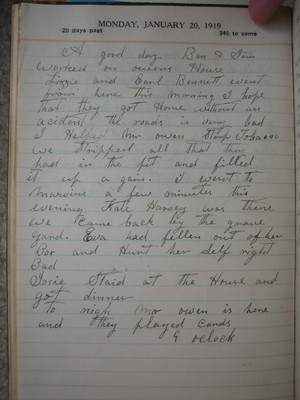 MONDAY, JANUARY 20, 1919
20 days past 345 to come
A good day Ben & Jim
worked on owens House
Lizzie and Earl Bennett went
from here this morning I hope
that they got Home without an
accident the roads is very bad
I Helped Mr owen Strip Tobacco
we stripped all that they
had in the pit and filled
it up a gain. I went to
Marvins a few minutes this
evening Kate Harvey was there
we Came back by the grave
yard. Eva had fellen out of her
Bor and Hunt her self right
Bad
Josie Staid at the House and
got dinner
to nigh Mr owen is here
and they played Cards
9 oclock